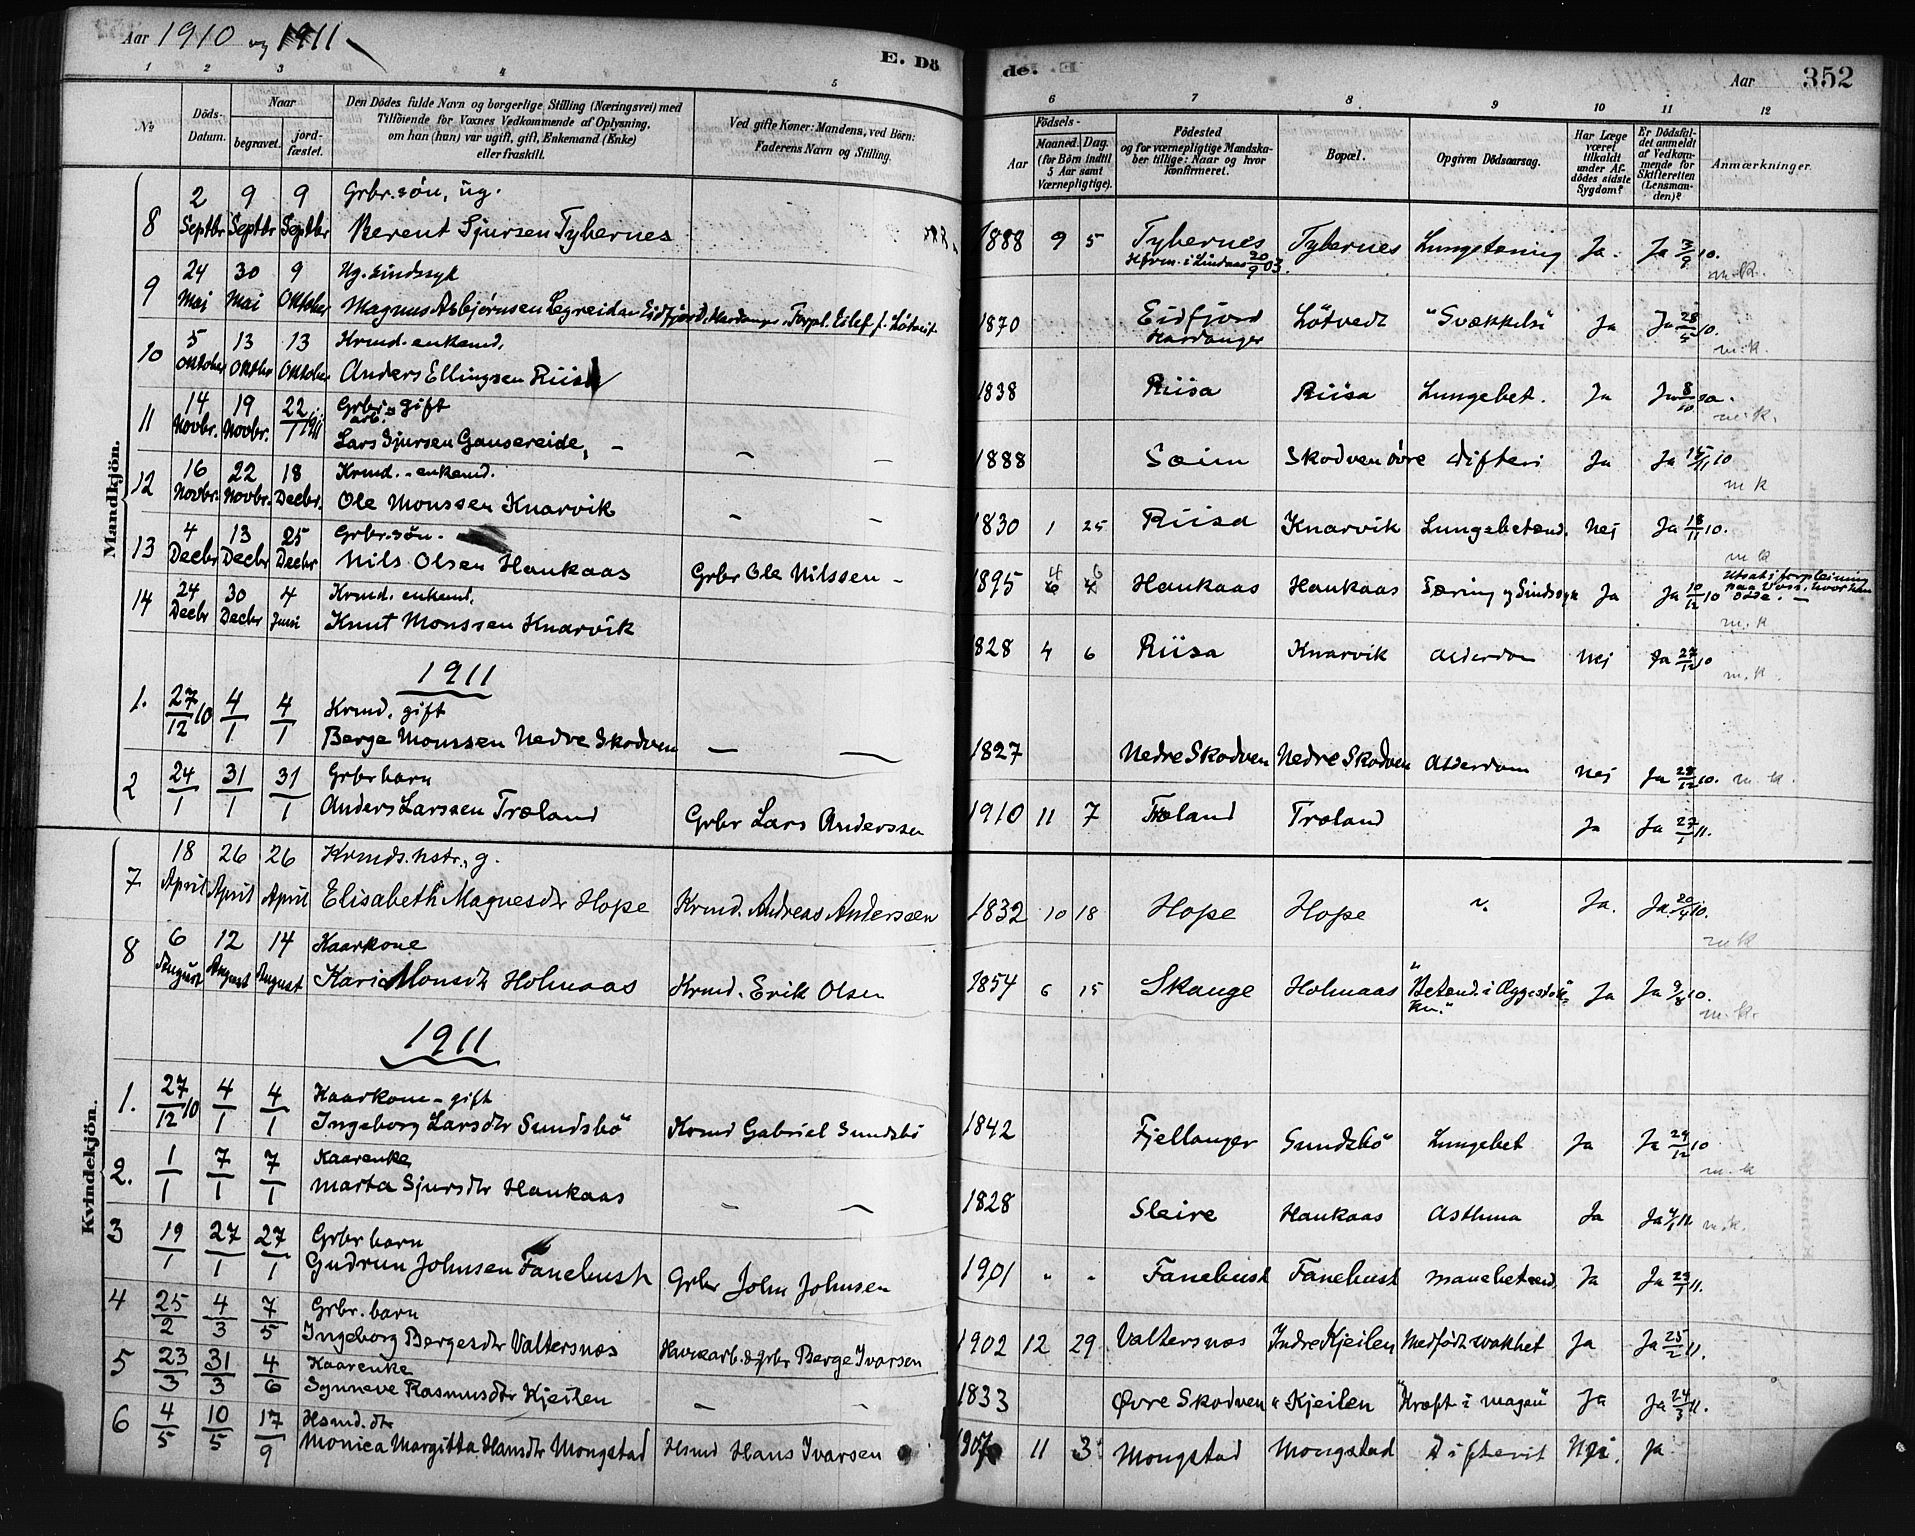 Aar 1910 og 1911
E. Dö
de.
Aar 352
1 2 3 4 5
6 7 8 9 10 11 12
No
Döds-Datum.
Naar
begravet.
jord-fæstet.
Den Dödes fulde Navn og borgerlige Stilling (Næringsvei) med
Tilföiende for Voxnes Vedkommende af Oplysning,
om han (hun) var ugift, gift, Enkemand (Enke)
eller fraskilt.
Ved gifte Koner: Mandens, ved Börn:
Faderens Navn og Stilling.
Födsels-
Aar
Maaned. Dag.
(for Börn indtil
5 Aar samt
Værnepligtige).
Födested
og for værnepligtige Mandska-
ber tillige: Naar og hvor
konfirmeret.
Bopæl.
Opgiven Dödsaarsag.
Har Læge
været
tilkaldt
under Af-
dödes sidste
Sygdom?
Er Dödsfal-
det anmeldt
af Vedkom-
mende for
Skifteretten
(Lensman-
den)?
Anmærkninger.
Mandkjön.
8 2 Septbr 9 Septbr 9 Septbr Grbr.søn, ug.
Berent Sjursen Tybernes 1888 9 5 Tybernes Tybernes Lungetæring Ja. Ja 3/9 10. m.k.
Konfm. i Lindaas 20/9 03.
9 24 Mai 30 Mai 9 Oktober Ug. sindssyk
Magnus Asbjørnsen Legreid an Eidfjord, Hardanger. Forpl. Eilef J. Løtveit 1870 Eidfjord Hardanger Løtvedt "Svækkelse" Ja Ja 28/5 10. m.k.
10 5 Oktober 13 Oktbr 13 Oktober Krmd. enkemd.
Anders Ellingsen Riisa 1838 Riisa Riisa Lungebet. Ja Ja 8/10 10. m.k.
11 14 Novbr. 19 Novbr. 22/1 1911 Grbr. gift
arb.
Lars Sjursen Gausereide, – – – 1888 Seim Skodven øvre Difteri Ja Ja 15/11 10 m k
12 16 Novbr. 22 Novbr. 18 Decbr. Krmd. - enkemd.
Ole Monssen Knarvik – – 1830 1 25 Riisa Knarvik Lungebetænd. Nei Ja 18/11 10. m k
13 4 Decbr 13 Decbr 25 Decbr Grbr.søn.
Nils Olsen Haukaas Grbr Ole Nilssen – 1895 4 6 Haukaas Haukaas Tæring og Sindssyk Ja Ja 10/12 10 Utsat i forpleining
paa Voss, hvor han
døde. – m.k
14 24 Decbr 30 Decbr 4 Juni Krmd. enkemd.
Knut Monssen Knarvik 1828 4 6 Riisa Knarvik Alderdom Nei Ja 27/12 10 m.k.
1911
1. 27/12 10 4/1 4/1 Krmd. gift
Berge Monssen Nedre Skodven – – 1827 Nedre Skodven Nedre Skodven Alderdom Nei Ja 28/12 10. m.k.
2 24/1 31/1 31/1 Grbr barn
Anders Larssen Træland Grbr Lars Anderssen 1910 11 7 Træland Træland Ja Ja 27/1 11.
Kvindekjön.
7 18 April 26 April 26 April Krmds.hstr., g.
Elisabeth Magnesdtr Hope Krmd. Andreas Anderssen 1832 10 18 Hope Hope Ja. Ja. 20/4 10. m k
8 6 August 12 August 14 August Kaarkone
Kari Monsdtr Holmaas Krmd. Erik Olsen 1854 6 15 Skauge Holmaas "Betænd. i Æggestok-
ken." Ja Ja 9/8 10. m.k.
1911
1. 27/12 10 4/1 4/1 Kaarkone - gift
Ingeborg Larsdtr Sundsbö Krmd Gabriel Sundsbö 1842 Fjellanger Sundsbö Lungebet Ja Ja 29/12 10 m.k
2. 1/1 7/1 7/1 Kaarenke
Marta Sjursdtr Haukaas – – 1828 Sleire Haukaas Asthma Ja Ja 4/1 11 m.k.
3 19/1 27/1 27/1 Grbr barn
Gudrun Johnsen Fanebust Grbr John Johnsen 1901 " " Fanebust Fanebust Mavebetænd. Ja Ja 23/1 11.
4 25/2 4/3 7/5 Grbr. barn
Ingeborg Bergesdtr Valtersnæs Havnearb. & grbr Berge Ivarsen 1902 12 29 Valtersnæs Indre Kjeilen Medfødt svakhet Ja Ja 25/2 11.
5 23/3 31/3 4/6 Kaarenke
Synneve Rasmusdtr Kjeilen – – 1833 Øvre Skodven " Kjeilen "Kræft i maven" Ja Ja 24/3 11.
6 4/5 10/5 17/9 Hsmd. dtr
Monica Margitta Hansdtr Mongstad Hsmd Hans Ivarsen 1907 11 3 Mongstad Mongstad Difterit Nei. Ja